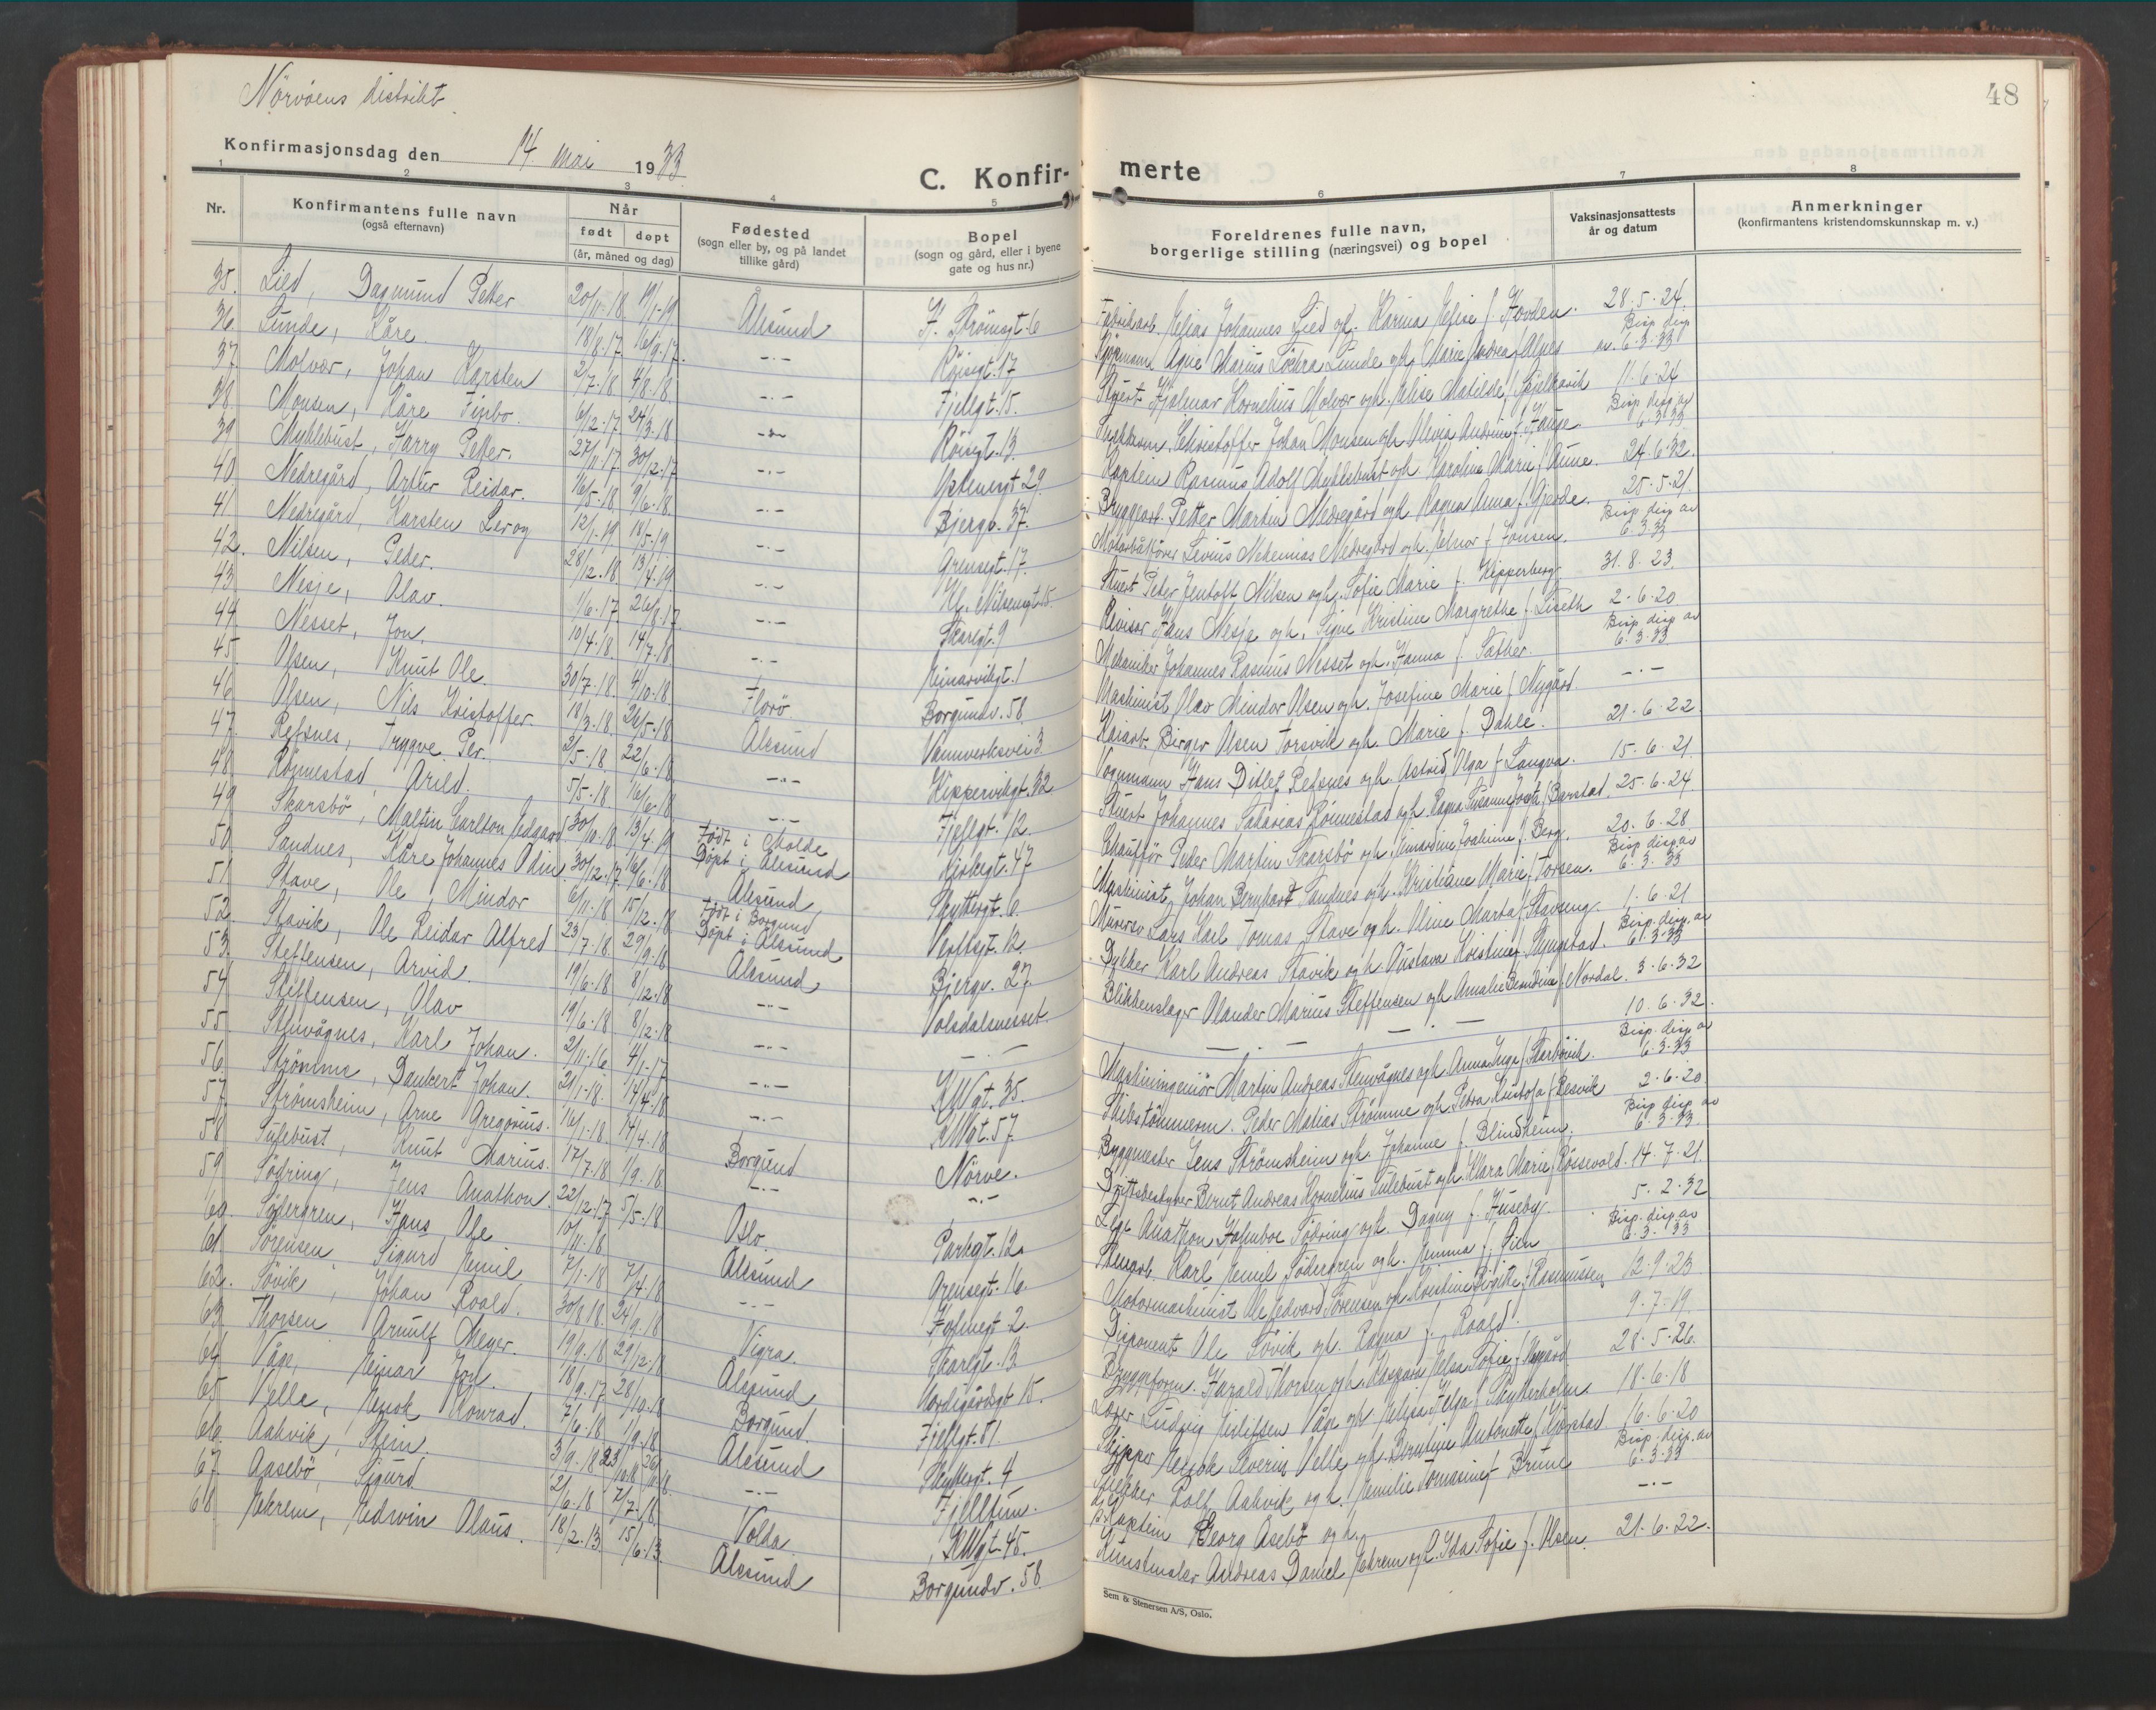 48
Nörvöens distrikt
Konfirmasjonsdag den 14. mai 1933
C. Konfirmerte
1 2 3 4 5 6 7 8
Nr. Konfirmantens fulle navn (også efternavn) Når født døpt (år, måned og dag) Fødested (sogn eller by, og på landet tillike gård) Bopel (sogn og gård, eller i byene gate og hus nr.) Foreldrenes fulle navn, borgerlige stilling (næringsvei) og bopel Vaksinasjonsattests år og datum Anmerkninger (konfirmantens kristendomskunnskap m. v.)
35. Lied, Dagmund Petter 20/11-18 19/1-19 Ålesund St. Strömgt. 6 Fabrikarb. Elias Johannes Lied og h. Karina Elise f. Hovden. 28.5.24
36. Lunde, Kåre 18/8.17 16/9.17. -.- Röisgt. 17 Agne Marius Lunde og h. Marie Andrea f. Alnes Bisp. disp av. 6.3.33
37. Molvær, Johan Karsten 2/7.18 4/8.18. -.- Fjellgt. 15. Stuert Hjalmar Kornelius Molvær og h. Elise Matilde f. Spjelkavik 11.6.24
38 Monsen, Kåre Finbo. 6/12.17 24/3.18 -.- Röisgt. 13. Kristoffer Johan Monsen og h. Olivia Andrine f. Hauge. Bisp. disp av 6.3.33
39 Myklebust, Harry Petter. 27/11.17 30/12.17 -.- 29. Kaptein Rasmus Adolf Myklebust og h. Karoline Marie f. Aune. 24.6.32.
40 Nedregård, Artur Reidar. 16/5.18 9/6.18 -.- Bjergv. 37. Bryggearb. Petter Martin Nedregård og h. Ragna Anna f. Gjerde. 25.5.21
41 Nedregård, Karsten Leroy 12/1.19 18/5.19 -.- Grensegt. 17. Motorbåtförer Levius Nehemias Nedregård og h. Elnor f. Jonsen. Bisp. disp av 6.3.33
42. Nilsen, Peder. 28/12.18. 13/4.19 -.- Kl. Nilsengt. 15. Stuert Peder Jentoft Nilsen og h. Sofie Marie f. Kipperberg 31.8.23
43 Nesje, Olav. 1/6.17 26/8.17 -.- Skaregt. 9 Revisor Hans Nesje og h. Signe Kristine Margrethe f. Liseth 2.6.20
44 Nesset, Jon. 10/4.18. 14/7.18 -.- Einarvikgt. 1 Mekaniker Johannes Rasmus Nesset og h. Hanna f. Sæther. Bisp disp av 6.3.33
45. Olsen, Knut Ole. 30/7.18. 4/10.18 Florö. Borgundv. 58. Maskinist Olav Mindor Olsen og h. Josefine Marie f. Nygård. -.-
46 Olsen, Nils Kristoffer. 18/3.18 26/5.18 Ålesund Vannverksvei 3. Kaiarb. Birger Olsen Torsvik og h. Marie f. Dahle. 21.6.22
47. Refsnes, Tryggve Per. 2/5.18 22/6.18. -.- Kippervikgt. 32 Vognmann Hans Ditlef Refsnes og h. Astrid Olga f. Longva. 15.6.21
48 Rönnestad, Arild. 5/5.18 16/6.18 -.- Fjellgt. 12 Stuert Johannes Sakarias Rönnestad og h. Ragna f. Barstad. 25.6.24
49 Skarsbö, Maltin Carlton Edgaard 30/10.18 13/4.19 Födt i Molde Döpt i Ålesund Kirkegt. 47 Chaufför Peder Martin Skarsbö og h. f. Berg. 20.6.28
50 Sandnes, Kåre Johannes Odin. 30/12.17 16/6.18 Ålesund Skyttergt. 6. Maskinist Johan Bernhart Sandnes og h. Kristiane Marie f. Torsen. Bisp disp av 6.3.33
51 Stave, Ole Mindor 6/11.18 15/12.18 Födt i Borgund Döpt i Ålesund 12. Murersv. Lars Karl Tomas Stave og h. Oline Marta f. Stavseng. 1.6.21
52. Stavik, Ole Reidar Alfred 23/7.18 29/9.18 Ålesund Bjergv. 27 Dykker Karl Andreas Stavik og h. Gustava Kristine f. Bisp. disp. av 6.3.33
53. Steffensen, Arvid. 19/6.18 8/12.18 -.- Volsdalsnesset. Blikkenslager Olander Marius Steffensen og h. Amalie Berndine f. Nordal. 3.6.32
54 Steffensen, Olav 19/6.18 8/12.18 -.- -.- -.- 10.6.32.
55 Stenvågnes, Karl Johan. 2/11.16 4/1.17 -.- KWgt. 35. Maskiningeniör Martin Andreas Stenvågnes og h. Anna Inga f. Bisp. disp av 6.3.33
56. Strömme, Dankert Johan. 21/1.18. 14/4.18 -.- KWgt. 57 Skibstömmerm. Peder Matias Strömme og h. Petra Kristofa f. Resvik 2.6.20
57 Strömsheim, Arne Gregorius. 16/1.18. 14/4.18 Borgund Nörve. Byggmester Jens Strömsheim og h. Johanne f. Blindheim. Bisp disp av 6.3.33.
58 Sulebust, Knut Marius. 17/7.18 1/9.18 -.- -.- Driftsbestyrer Bernt Andreas Kornelius Sulebust og h. Klara Marie f. Rössevold. 14.7.21
59 Södring, Jens Anathon. 22/12.17 5/5.18 Oslo. Parkgt. 12. Lege Anathon Holmboe Södring og h. Dagny f. Huseby. 5.2.32
60. Södergren, Hans Ole 10/11.18. Ålesund Grensegt. 16. Stenarb. Karl Emil Södergren og h. Emma f. Lien Bisp. disp av 6.3.33
61 Sörensen, Sigurd Emil 7/1.18 7/4.18 -.- Holmegt. 2. Motormaskinist Ole Edvard Sörensen og h. Kristine Birgitte f. Rasmussen 12.9.23
62. Sövik, Johan Roald. 30/8.18. 24/9.18 Vigra. Skaregt. 13 Disponent Ole Sövik og h. Ragna f. Roald. 9.7.19.
63 Thorsen Arnulf Meyer. 19/9.18 29/12.18 Ålesund Nordigårdsgt 15. Bryggeform. Harald Thorsen og h. Kaspara Elsa Sofie f. 28.5.26.
64 Våge, Einar Jon. 18/9.17 28/10.18 Borgund. Fjellgt. 51. Loser Ludvig Våge og h. Elisa Helga f. Skytterholm. 18.6.18
65 Velle, Enok Konrad. 7/6.18 1/9.18 Ålesund Skyttergt. 4 Skipper Enok Severin Velle og h. Berntine Antonette f. 16.6.20
66. Aahvik, Stein. 3/9.18 -.- Fjelltun. Rolf Aahvik og h. Emilie Tomasine f. Brune Bisp. disp. av 6.3.33
67 Aasebö, Sigurd 2/6.18 7/7.18. Volda KWgt. 45. Kaptein Georg Åsebö og h. -.-
68 Ekrem, Edwin Olaus. 18/2.13 15/6.13 Ålesund Borgundv. 58 Kunstmaler Andreas Daniel Ekrem og h. Ida Sofie f. Olsen. 21.6.22.
Sem & Stenersen A/S, Oslo.